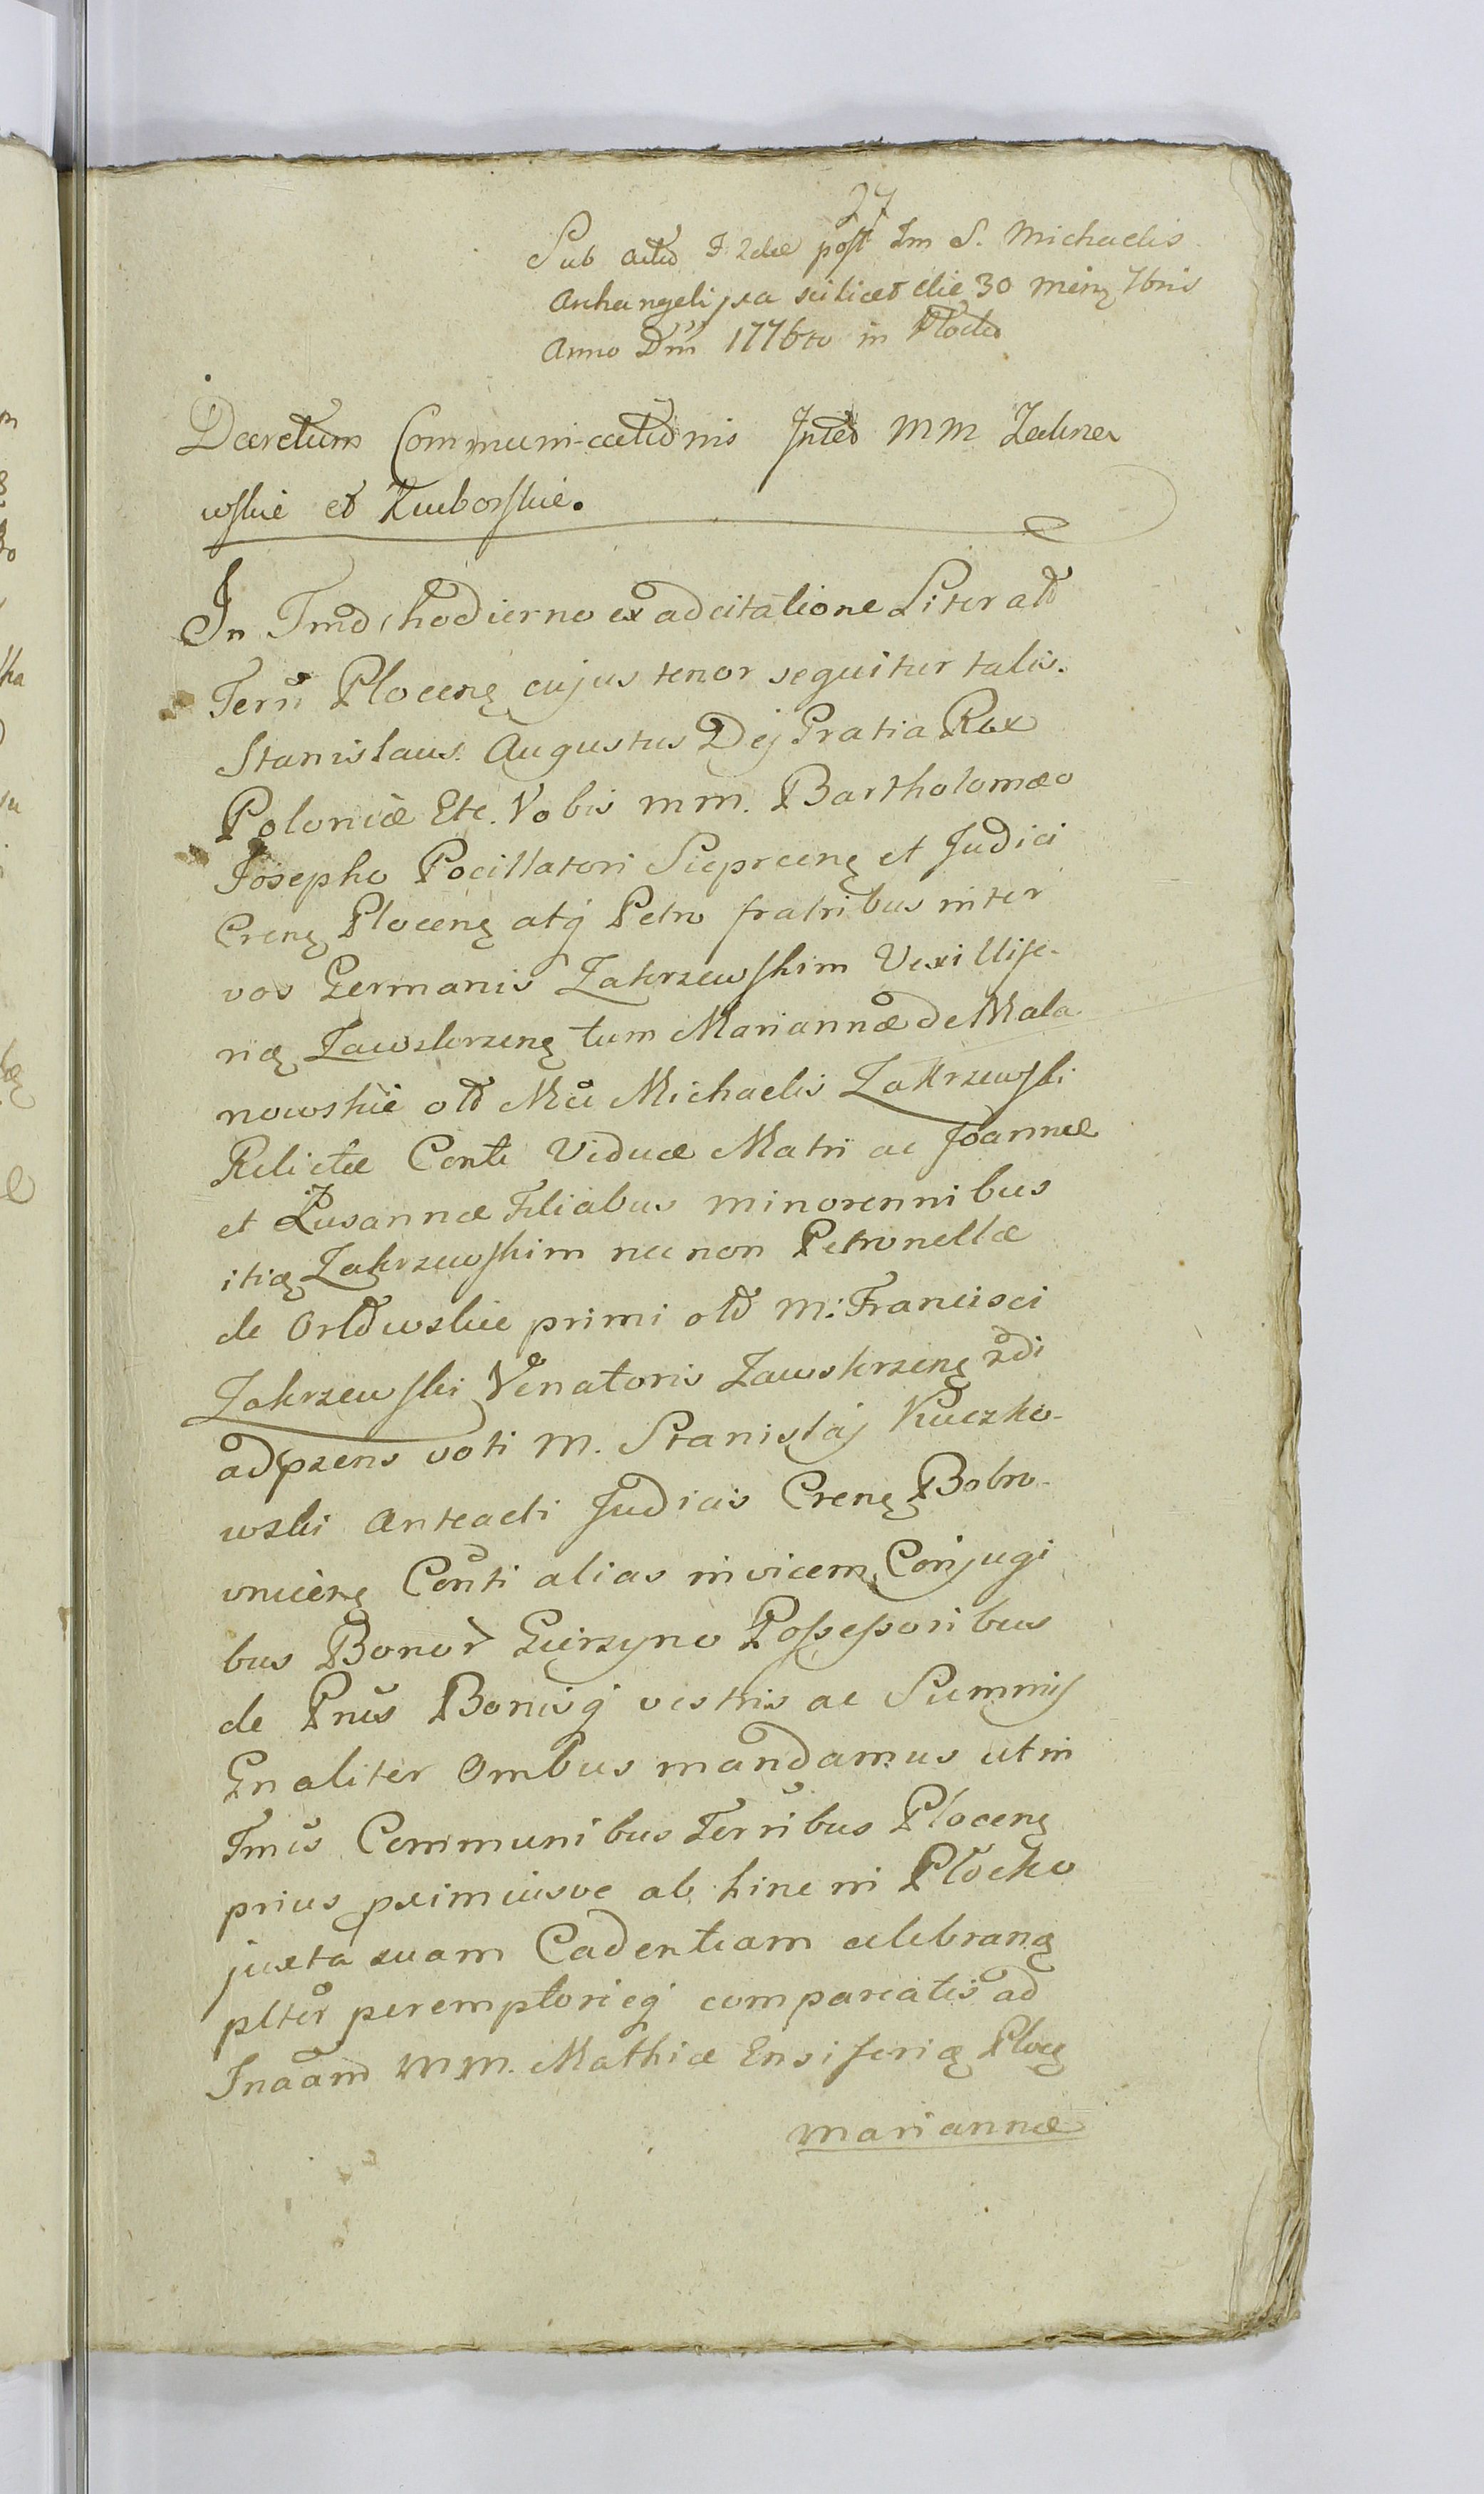 27
Sub actu F 2da post Fm S. Michaelis
Archangeli pxa scilicet die 30 menę 7bris
Anno Dni 1776to in Plocko
Decretum Communi-cationis Inter MM Zakrze
wskie et Kuborskie.
In Tmo hodierno ex adcitatione Literali
Terri Plocenę cujus tenor sequitur talis.
Stanislaus Augustus Dej Gratia Rex
Poloniæ Etc. Vobis mm. Bartholomæo
Josepho Pocillatori Sieprcenę et Judici
Crenę Plocenę atq Petro fratribus inter
vos Germanis Zakrzewskim Vexillife-
rię Zawskrzenę tum Mariannæ de Mala
nowskie olt Mci Michaelis Zakrzewski
Relictæ Conti Viduæ Matri ac Joannæ
et Zusannæ Filiabus minorennibus
itię Zakrzewskim nec non Petronellæ
de Orłowskie primi olt M: Francisci
Zakrzewski Venatoris Zawskrzenę 2di
ad przens voti M. Stanislaj Kuczko-
wski Anteacti Judicis Crenę Bobro-
vnicenę Conti alias invicem Conjugi
bus Bonor Gierzyno Possessoribus
de Pnis Bonisq vestris ac Summis
Gnaliter Ombus mandamus ut in
Tmis Communibus Terribus Plocenę
prius pximiusve ab hinc in Plocko
juxta suam Cadentiam celebranę
plter peremptorieq compareatis ad
Inaam MM. Mathiæ Ensiferię Plocę
Mariannæ